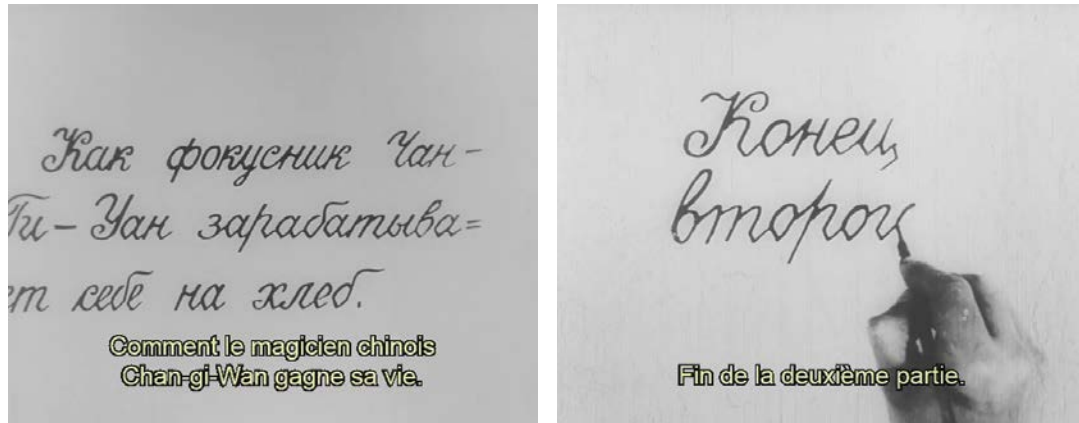 Как фокусник Чан-
Ги-Уан зарабатыва=
ет себе на хлеб.
Comment le magicien chinois
Chan-gi-Wan gagne sa vie.
Конец
второй
Fin de la deuxième partie.